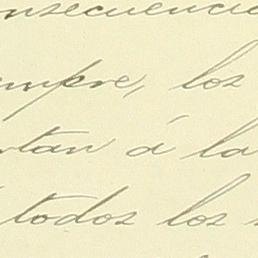 onsecuencia
empre, los
tan á la
todos los